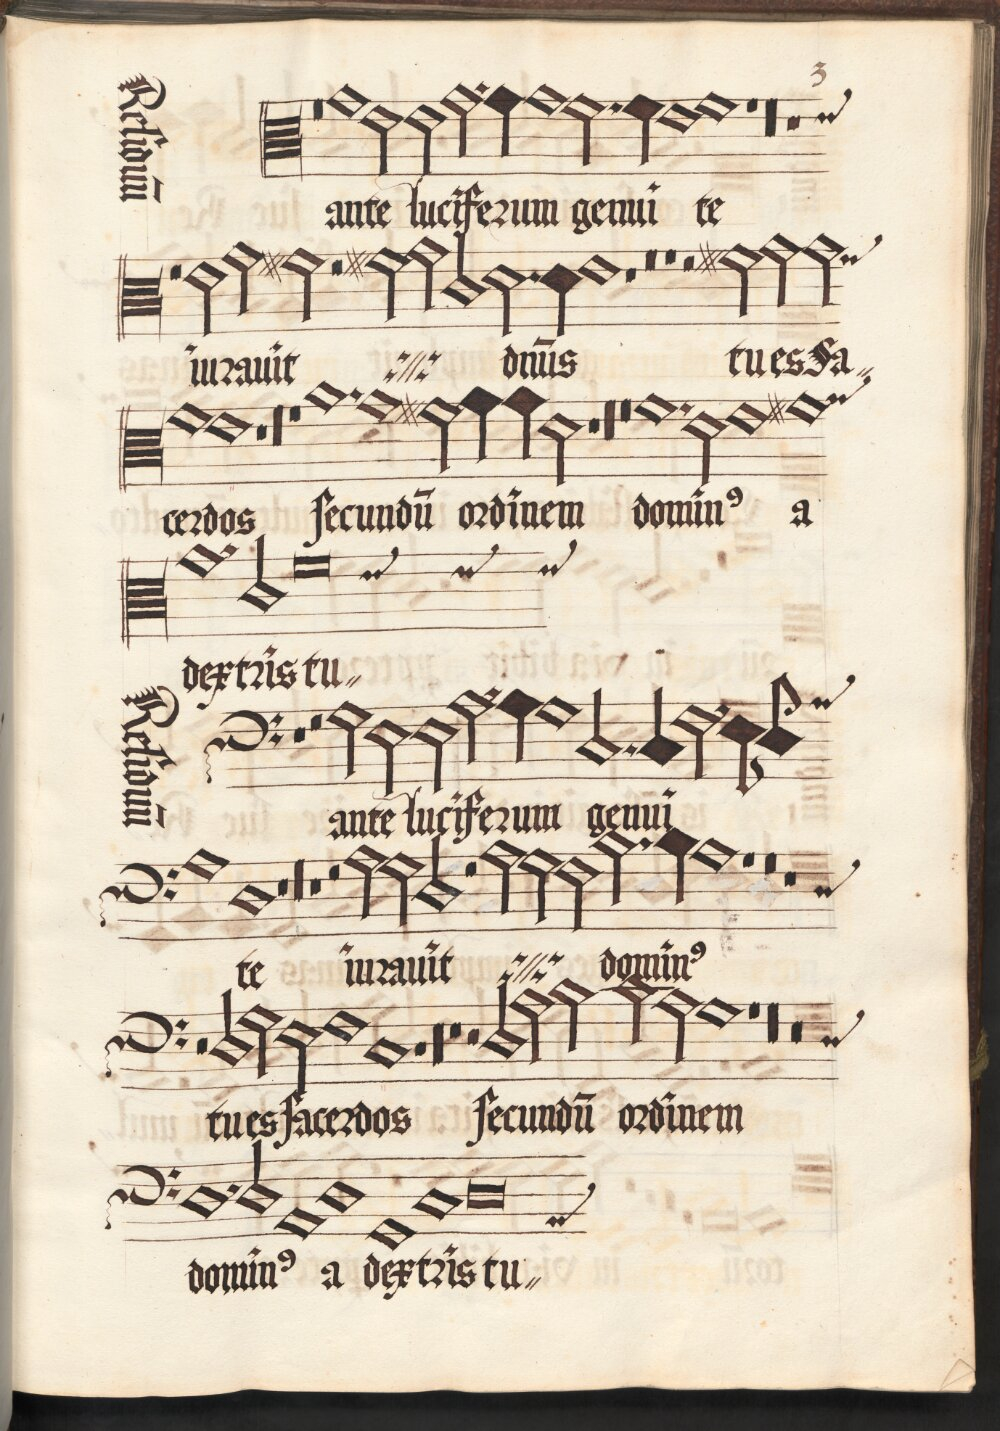 3
Residuū
ante luciferum genui te
iurauit :///: dnūs tu es Sa„
cerdos secundū ordinem dominꝰ a
dextris tu„
Residuū
ante luciferum genui
te iurauit :///: dominꝰ
tu es sacerdos secundū ordinem
dominꝰ a dextris tu„